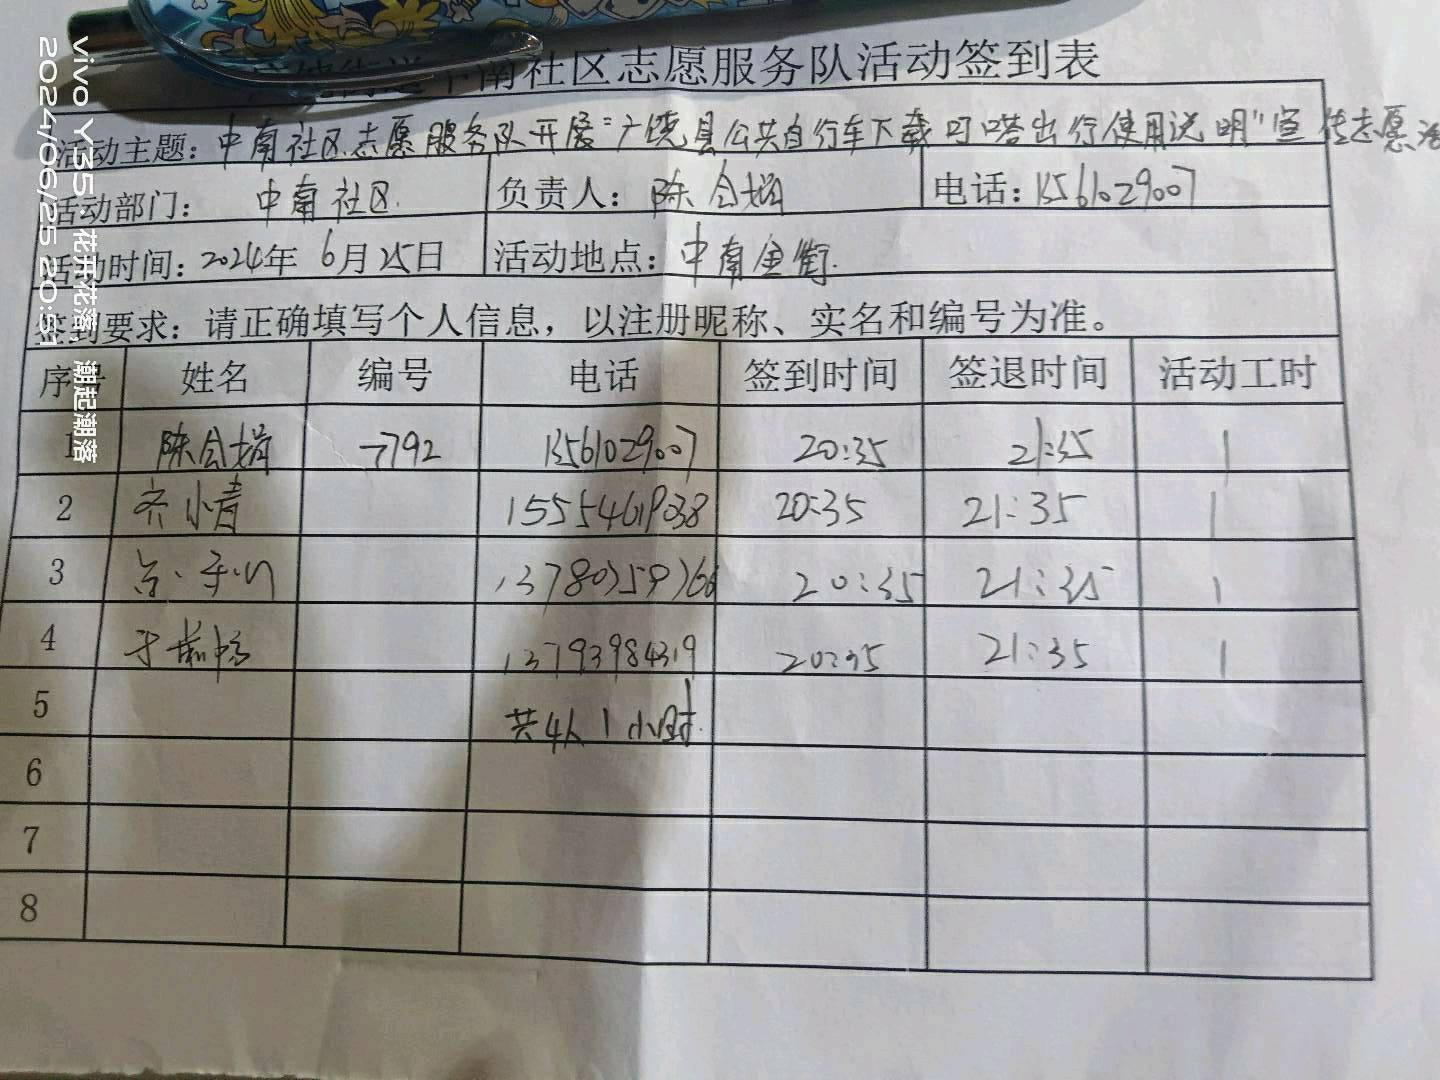 南社区志愿服务队活动签到表
活动主题：中南社区志愿服务队开展"广饶县公共自行车下载叮嗒出行使用说明"宣传志愿活
活动部门： 中南社区 负责人：陈会 电话：13561029007
活动时间：2024年6月25日 活动地点：中南金街
签到要求：请正确填写个人信息，以注册昵称、实名和编号为准。
序号 姓名 编号 电话 签到时间 签退时间 活动工时
1 陈会 7792 13561029007 20:35 21:35 1
2 齐小青 15554619038 20:35 21:35 1
3 20:35 21:35 1
4 于 13793984319 20:35 21:35 1
5 共4人1小时
6
7
8
vivo Y35·花开花落，潮起潮落
2024/06/25 20: